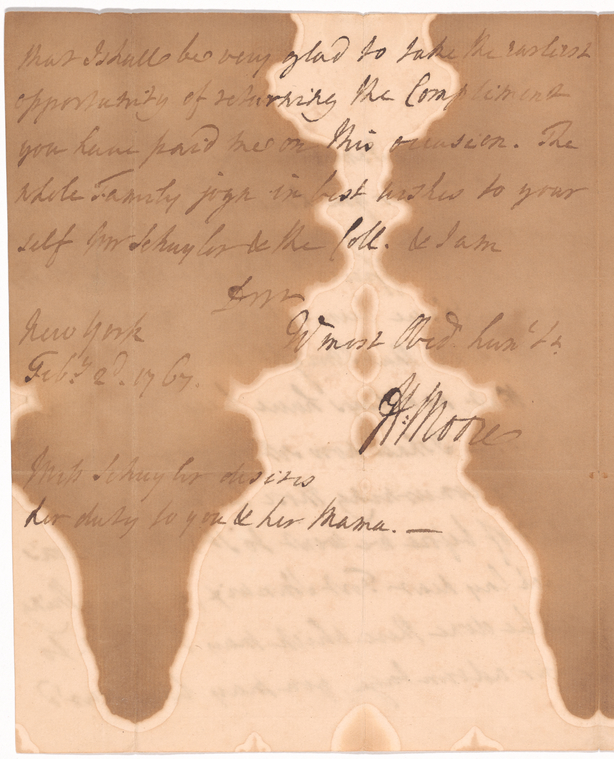 that I shall be very glad to take the earliest
opportunity of returning the Compliment
you have paid me on this occasion. The
whole Family joyn in best wishes to your
self Mrs Schuyler & the Coll. & I am
Yr most Obedt humble St
New York
Feb:y 2d. 1767.
H: Moore
Miss Schuyler desires
her duty to you & her Mama. —